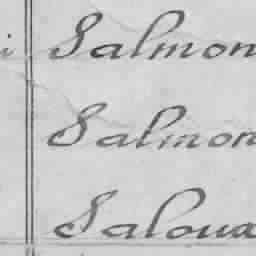 i Salmon
Salmon
Saloux